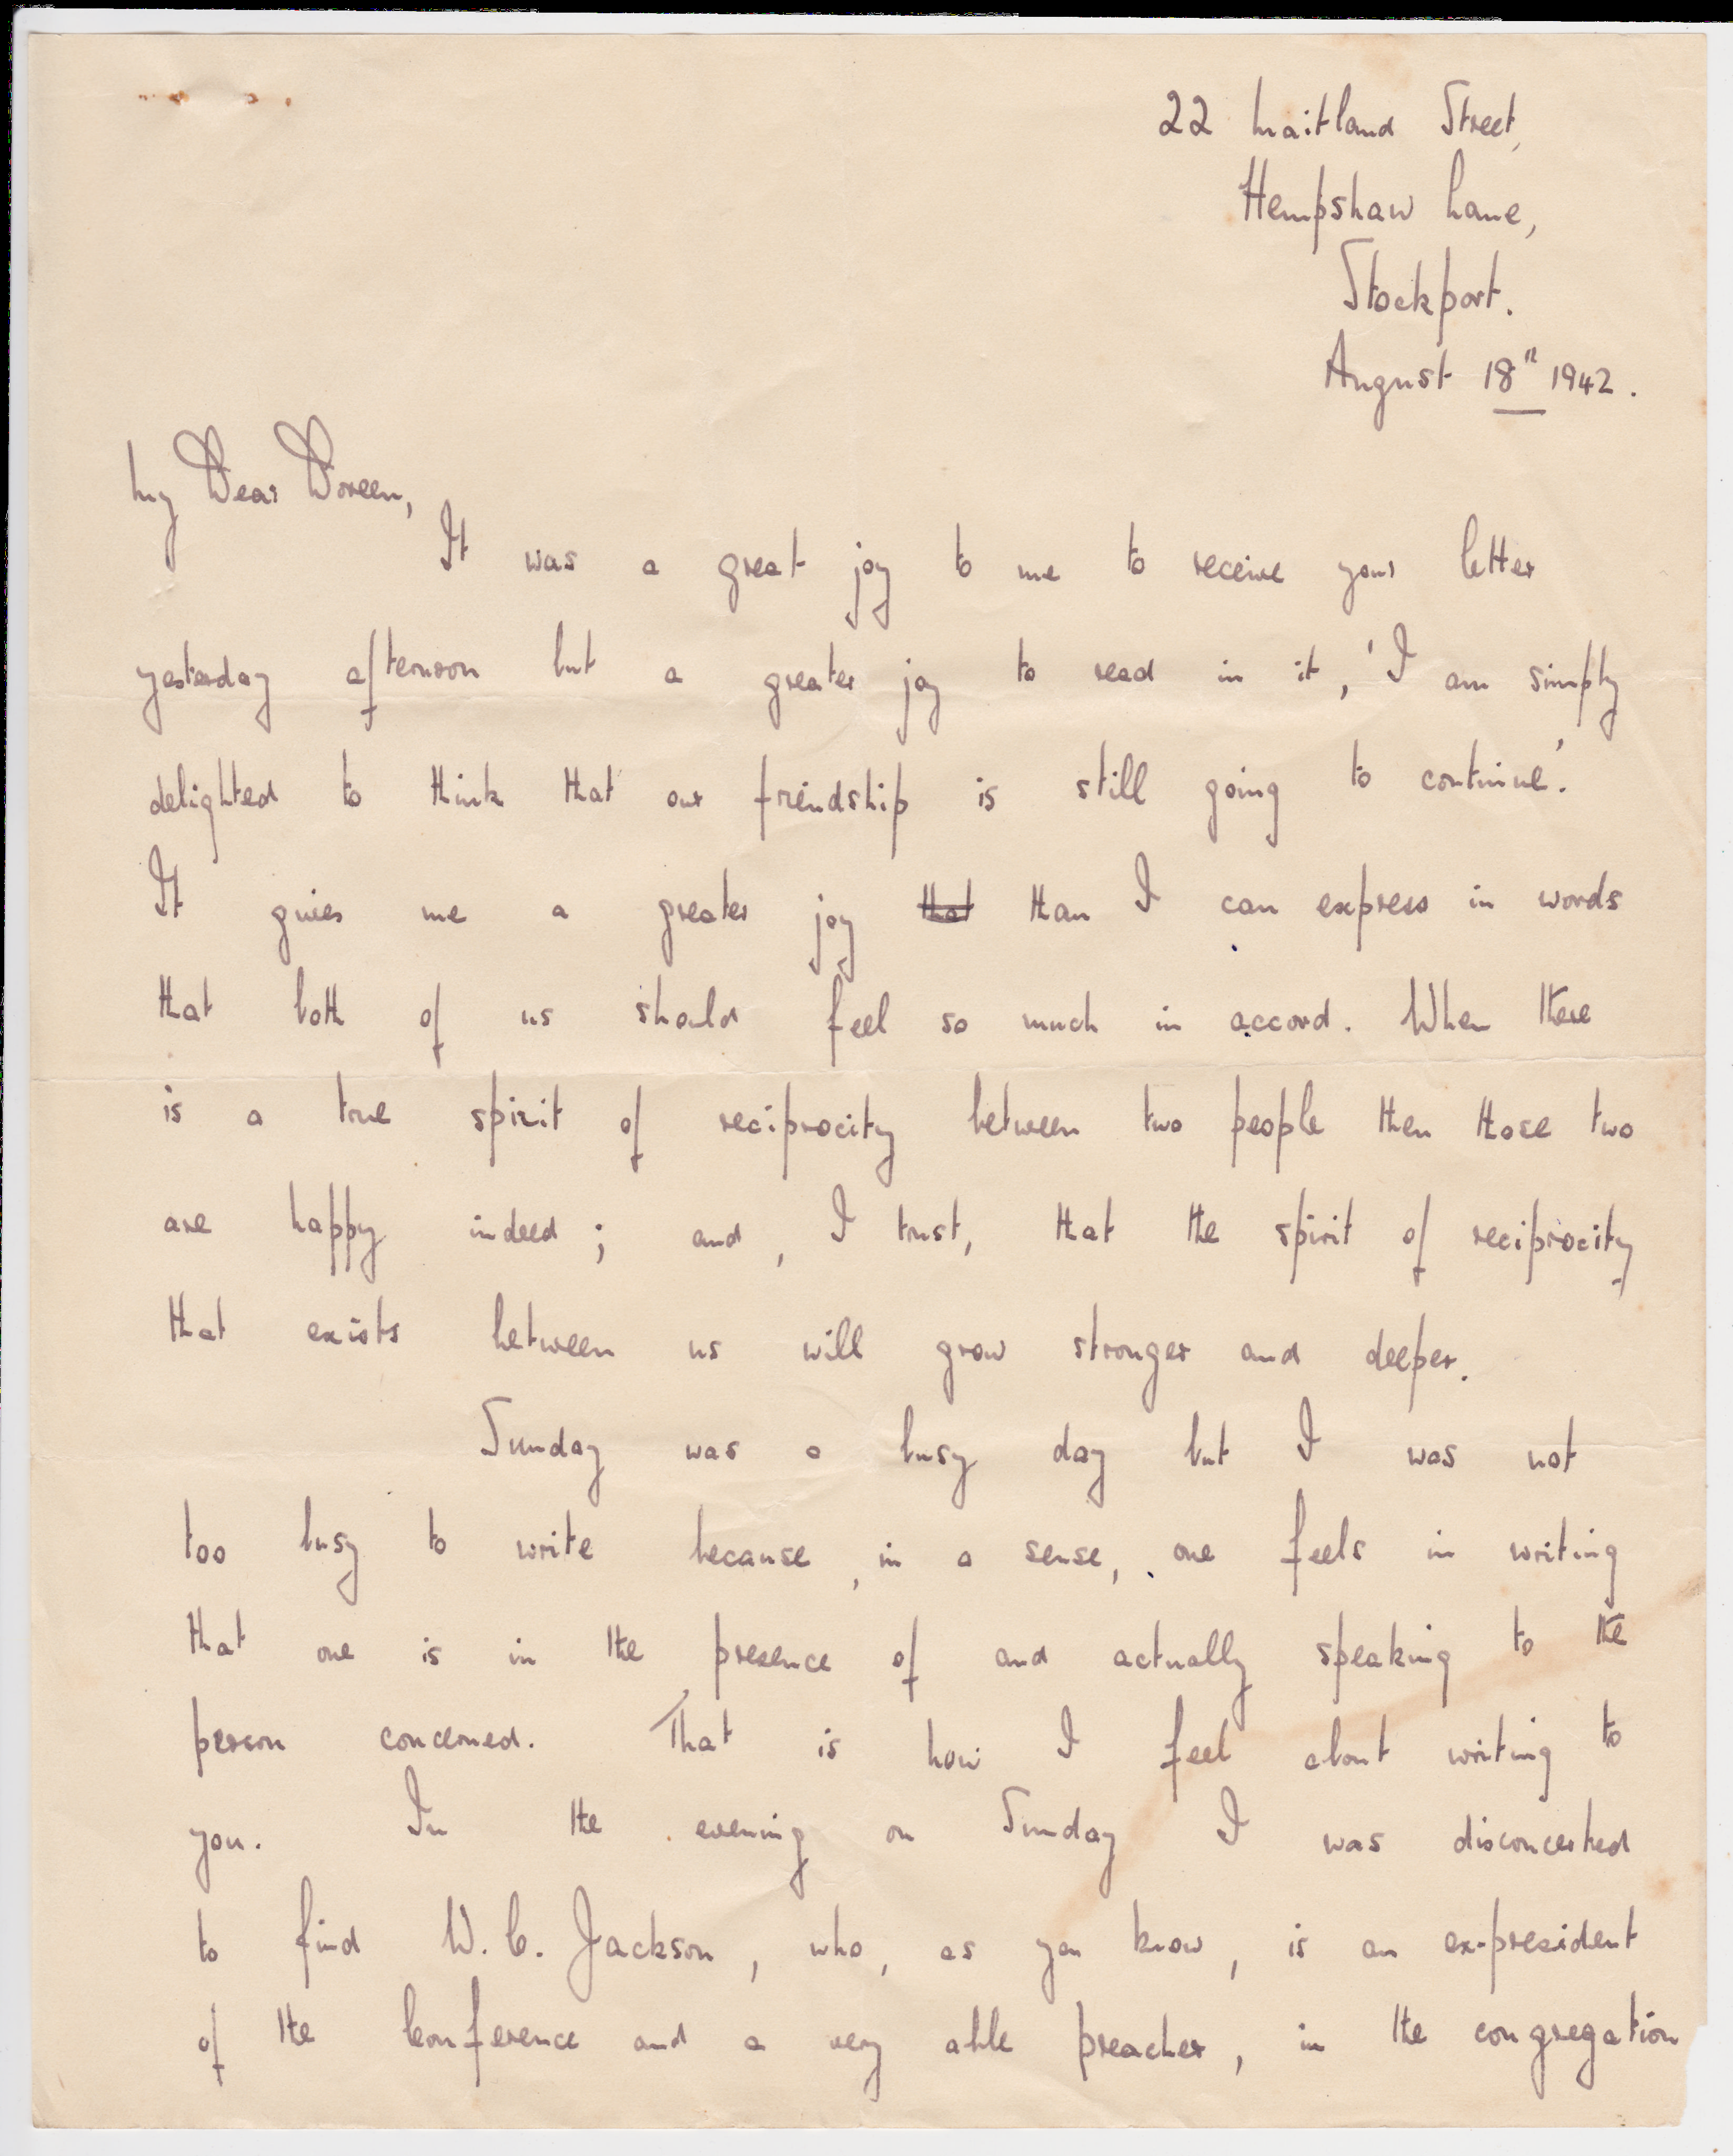 22 Maitland Street,
Hempshaw Lane,
Stockport.
August 18th 1942.
My Dear Doreen,
It was a great joy to me to receive your letter
yesterday afternoon but a greater joy to read in it, 'I am simply
delighted to think that our friendship is still going to continue'.
It gives me a greater joy that than I can express in words
that both of us should feel so much in accord. When there
is a true spirit of reciprocity between two people then those two
are happy indeed; and, I trust, that the spirit of reciprocity
that exists between us will grow stronger and deeper.
Sunday was a busy day but I was not
too busy to write because, in a sense, one feels in writing
that one is in the presence of and actually speaking to the
person concerned. That is how I feel about writing to
you. In the evening on Sunday I was disconcerted
to find W. C. Jackson, who, as you know, is an ex-president
of the Conference and a very able preacher, in the congregation